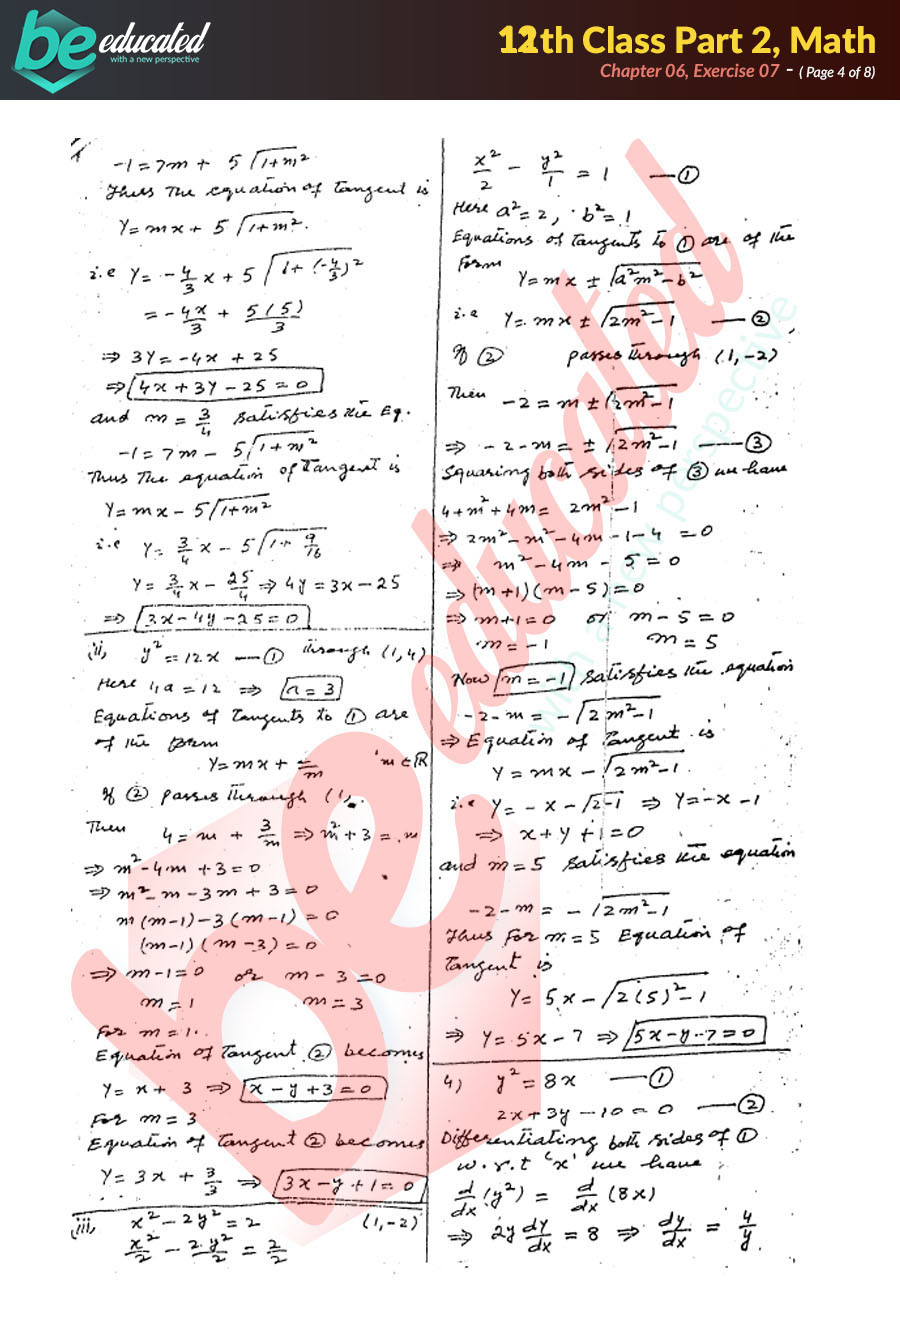 be educated
with a new perspective
12th Class Part 2, Math
Chapter 06, Exercise 07 - ( Page 4 of 8)
-1 = 7m + 5√(1+m²)
Thus The equation of Tangent is
Y = mx + 5√(1+m²).
i.e Y = -4/3 x + 5√(1+(-4/3)²)
= -4x/3 + 5(5)/3
⇒ 3Y = -4x + 25
⇒ 4x + 3y - 25 = 0
and m = 3/4 satisfies the Eq.
-1 = 7m - 5√(1+m²)
Thus The equation of Tangent is
Y = mx - 5√(1+m²)
i.e Y = 3/4 x - 5√(1+9/16)
Y = 3/4 x - 25/4 ⇒ 4y = 3x - 25
⇒ 3x - 4y - 25 = 0
ii, y² = 12x — ① through (1,4)
Here 4a = 12 ⇒ a = 3
Equations of Tangents to ① are
of the form
Y = mx + /m m ∈ R
If ② passes through (1,
Then 4 = m + 3/m ⇒ m² + 3 = m
⇒ m² - 4m + 3 = 0
⇒ m² - m - 3m + 3 = 0
m(m-1) - 3(m-1) = 0
(m-1)(m-3) = 0
⇒ m-1 = 0 or m-3 = 0
m = 1 m = 3
For m = 1.
Equation of Tangent ② becomes
Y = x + 3 ⇒ x - y + 3 = 0
For m = 3
Equation of Tangent ② becomes
Y = 3x + 3/3 ⇒ 3x - y + 1 = 0
iii, x² - 2y² = 2 (1,-2)
x²/2 - 2y²/2 = 2/2
x²/2 - y²/1 = 1 — ①
Here a² = 2, b² = 1
Equations of Tangents to ① are of the
Form Y = mx ± √(a²m² - b²)
i.e Y = mx ± √(2m² - 1) — ②
If ② passes through (1,-2)
Then -2 = m ± √(2m² - 1)
⇒ -2 - m = ± √(2m² - 1) — ③
Squaring both sides of ③ we have
4 + m² + 4m = 2m² - 1
⇒ 2m² - m² - 4m - 1 - 4 = 0
⇒ m² - 4m - 5 = 0
⇒ (m+1)(m-5) = 0
⇒ m+1 = 0 or m - 5 = 0
m = -1 m = 5
Now m = -1 satisfies the equation
-2 - m = - √(2m² - 1)
⇒ Equation of Tangent is
Y = mx - √(2m² - 1).
i.e Y = -x - √(2-1) ⇒ Y = -x - 1
⇒ x + y + 1 = 0
and m = 5 satisfies the equation
-2 - m = - √(2m² - 1)
Thus For m = 5 Equation of
Tangent is
Y = 5x - √(2(5)² - 1)
⇒ Y = 5x - 7 ⇒ 5x - y - 7 = 0
4) y² = 8x — ①
2x + 3y - 10 = 0 — ②
Differentiating both sides of ①
w.r.t 'x' we have
d/dx (y²) = d/dx (8x)
⇒ 2y dy/dx = 8 ⇒ dy/dx = 4/y.
be educated
with a new perspective